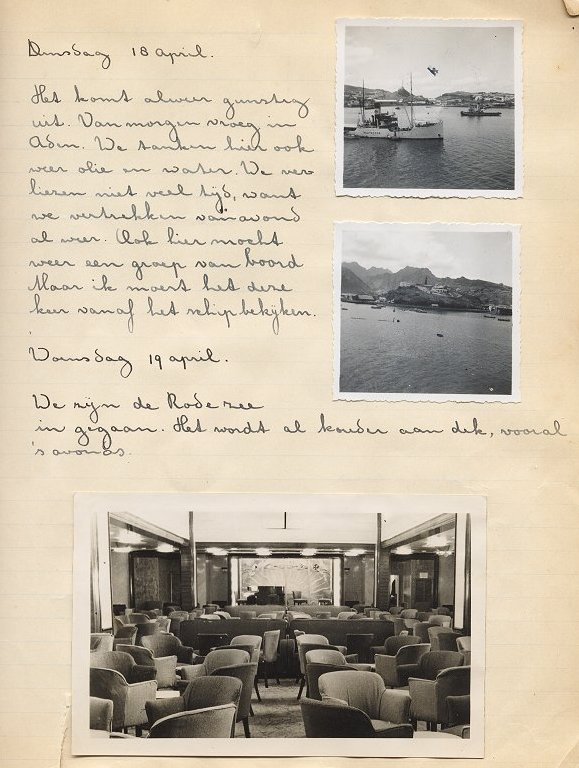 Dinsdag 18 april.
Het komt alweer gunstig
uit. Van morgen vroeg in
Aden. We tanken hier ook
weer olie en water. We ver
liezen niet veel tijd, want
we vertrekken vanavond
al weer. Ook hier mocht
weer een groep van boord
Maar ik moest het deze
keer vanaf het schip bekijken.
Woensdag 19 april.
We zijn de Rode zee
in gegaan. Het wordt al kouder aan dek, vooral
's avonds.